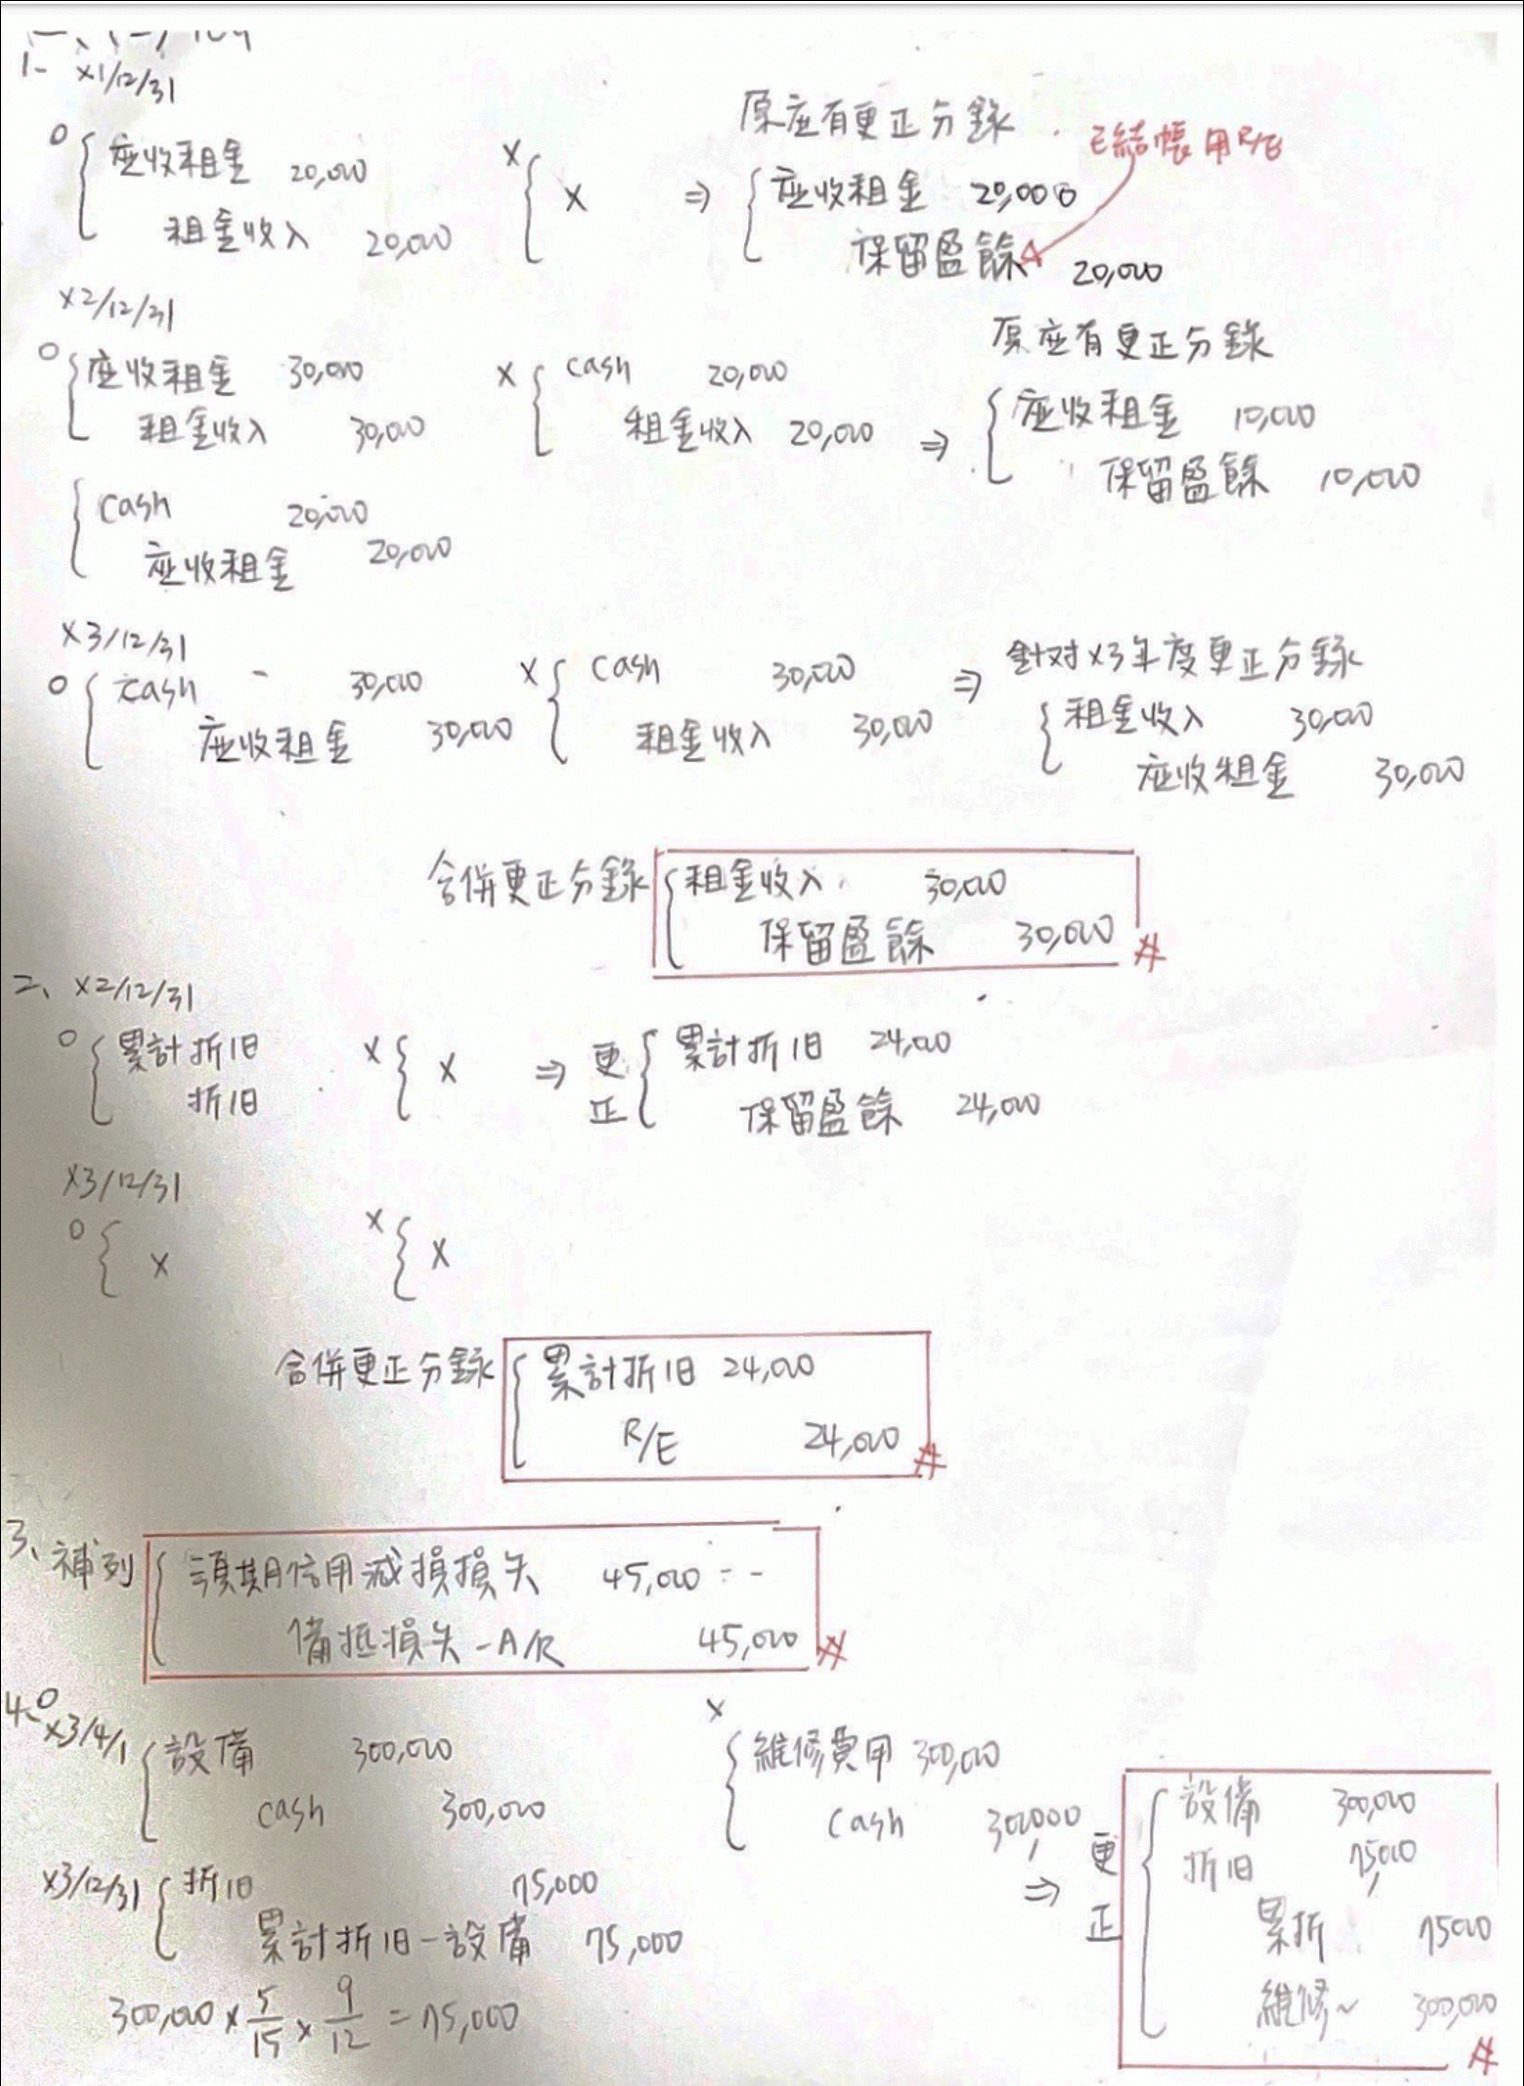 1- X1/12/31
原應有更正分錄
已結帳用R/E
O 應收租金 20,000 X X ⇒ 應收租金 20,000
租金收入 20,000 保留盈餘 20,000
X2/12/31
原應有更正分錄
O 應收租金 30,000 X cash 20,000
租金收入 30,000 租金收入 20,000 ⇒ 應收租金 10,000
保留盈餘 10,000
cash 20,000
應收租金 20,000
X3/12/31
針對X3年度更正分錄
O cash 30,000 X cash 30,000 ⇒ 租金收入 30,000
應收租金 30,000 租金收入 30,000 應收租金 30,000
合併更正分錄 租金收入 30,000
保留盈餘 30,000 #
二、X2/12/31
O 累計折旧 X X ⇒ 更正 累計折旧 24,000
折旧 保留盈餘 24,000
X3/12/31
O X X X
合併更正分錄 累計折旧 24,000
R/E 24,000 #
3、補列 預期信用減損損失 45,000
備抵損失-A/R 45,000 #
4、O X3/4/1 設備 300,000 X 維修費用 300,000
cash 300,000 cash 300,000
⇒ 更正 設備 300,000
折旧 75,000
累折 75,000
維修~ 300,000 #
X3/12/31 折旧 75,000
累計折旧-設備 75,000
300,000 × 5/15 × 9/12 = 75,000